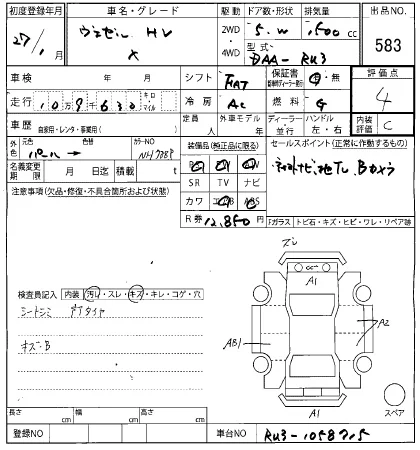 初度登録年月 車名・グレード 駆動 ドア数・形状 排気量 出品NO.
27/1月 ヴェゼル HV 2WD 5.W 1,500cc 583
X ・4WD 型式 DAA-RU3
車検 年 月 シフト FAT 保証書 有・無 評価点
走行 109,630 キロ マイル 冷房 AC 燃料 G 4
車歴 自家用・レンタ・事業用( ) 定員 人 外車モデル 年 ディーラー・並行 ハンドル 左・右 内装評価 C
外色 元色 パール → 色替 カラーNO NH788P 装備品(純正品に限る) セールスポイント(正常に作動するもの)
名義変更期限 月 日迄 積載 t SR TV ナビ 社外ナビ 地TV Bカメラ
注意事項(欠品・修復・不具合箇所および状態) カワ エアB ABS
R券 12,850円 Fガラス トビ石・キズ・ヒビ・ワレ・リペア跡
検査員記入 内装 汚レ・スレ・キズ・キレ・コゲ・穴 A1
シートシミ
キズ・B AB1 A2
スペア
長さ cm 幅 cm 高さ cm A1
登録NO 車台NO RU3-1058715